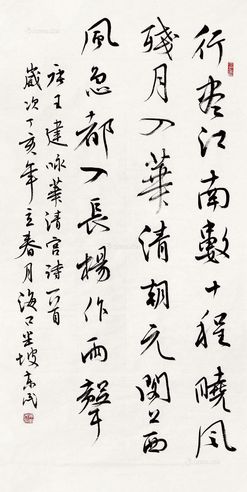 行盡江南數十程曉風
殘月入華清朝元閣上西
風急都入長楊作雨聲
唐王建詠華清宮詩一首
歲次丁亥年立春月海口坡